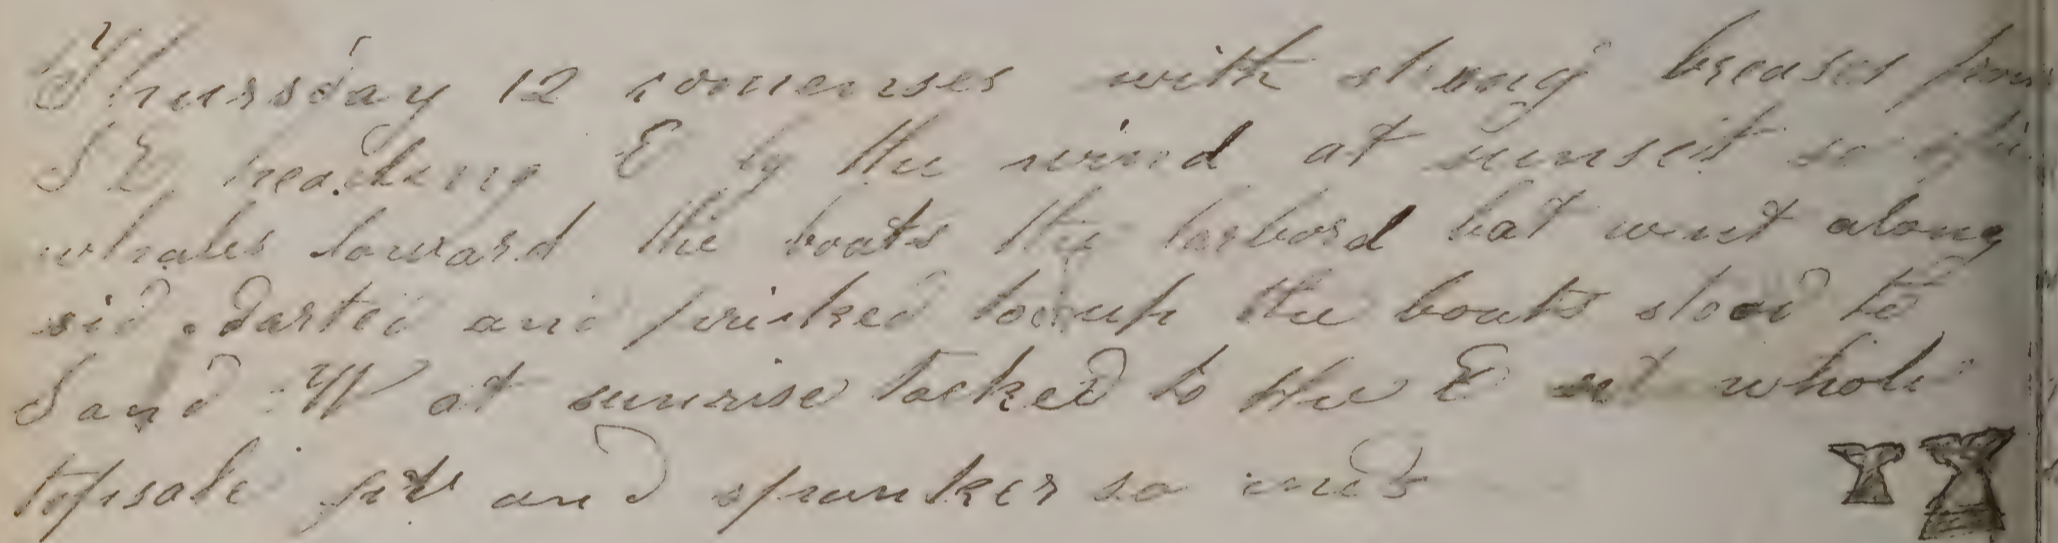 Thursday 12 comenses with strong breases from
S E heading E by the wind at sunset
whales loward the boats the larbord bat went along
sid darted and pricked up the boats stood to
S and W at sunrise tacked to the E whole
topsale jib and spanker so ends